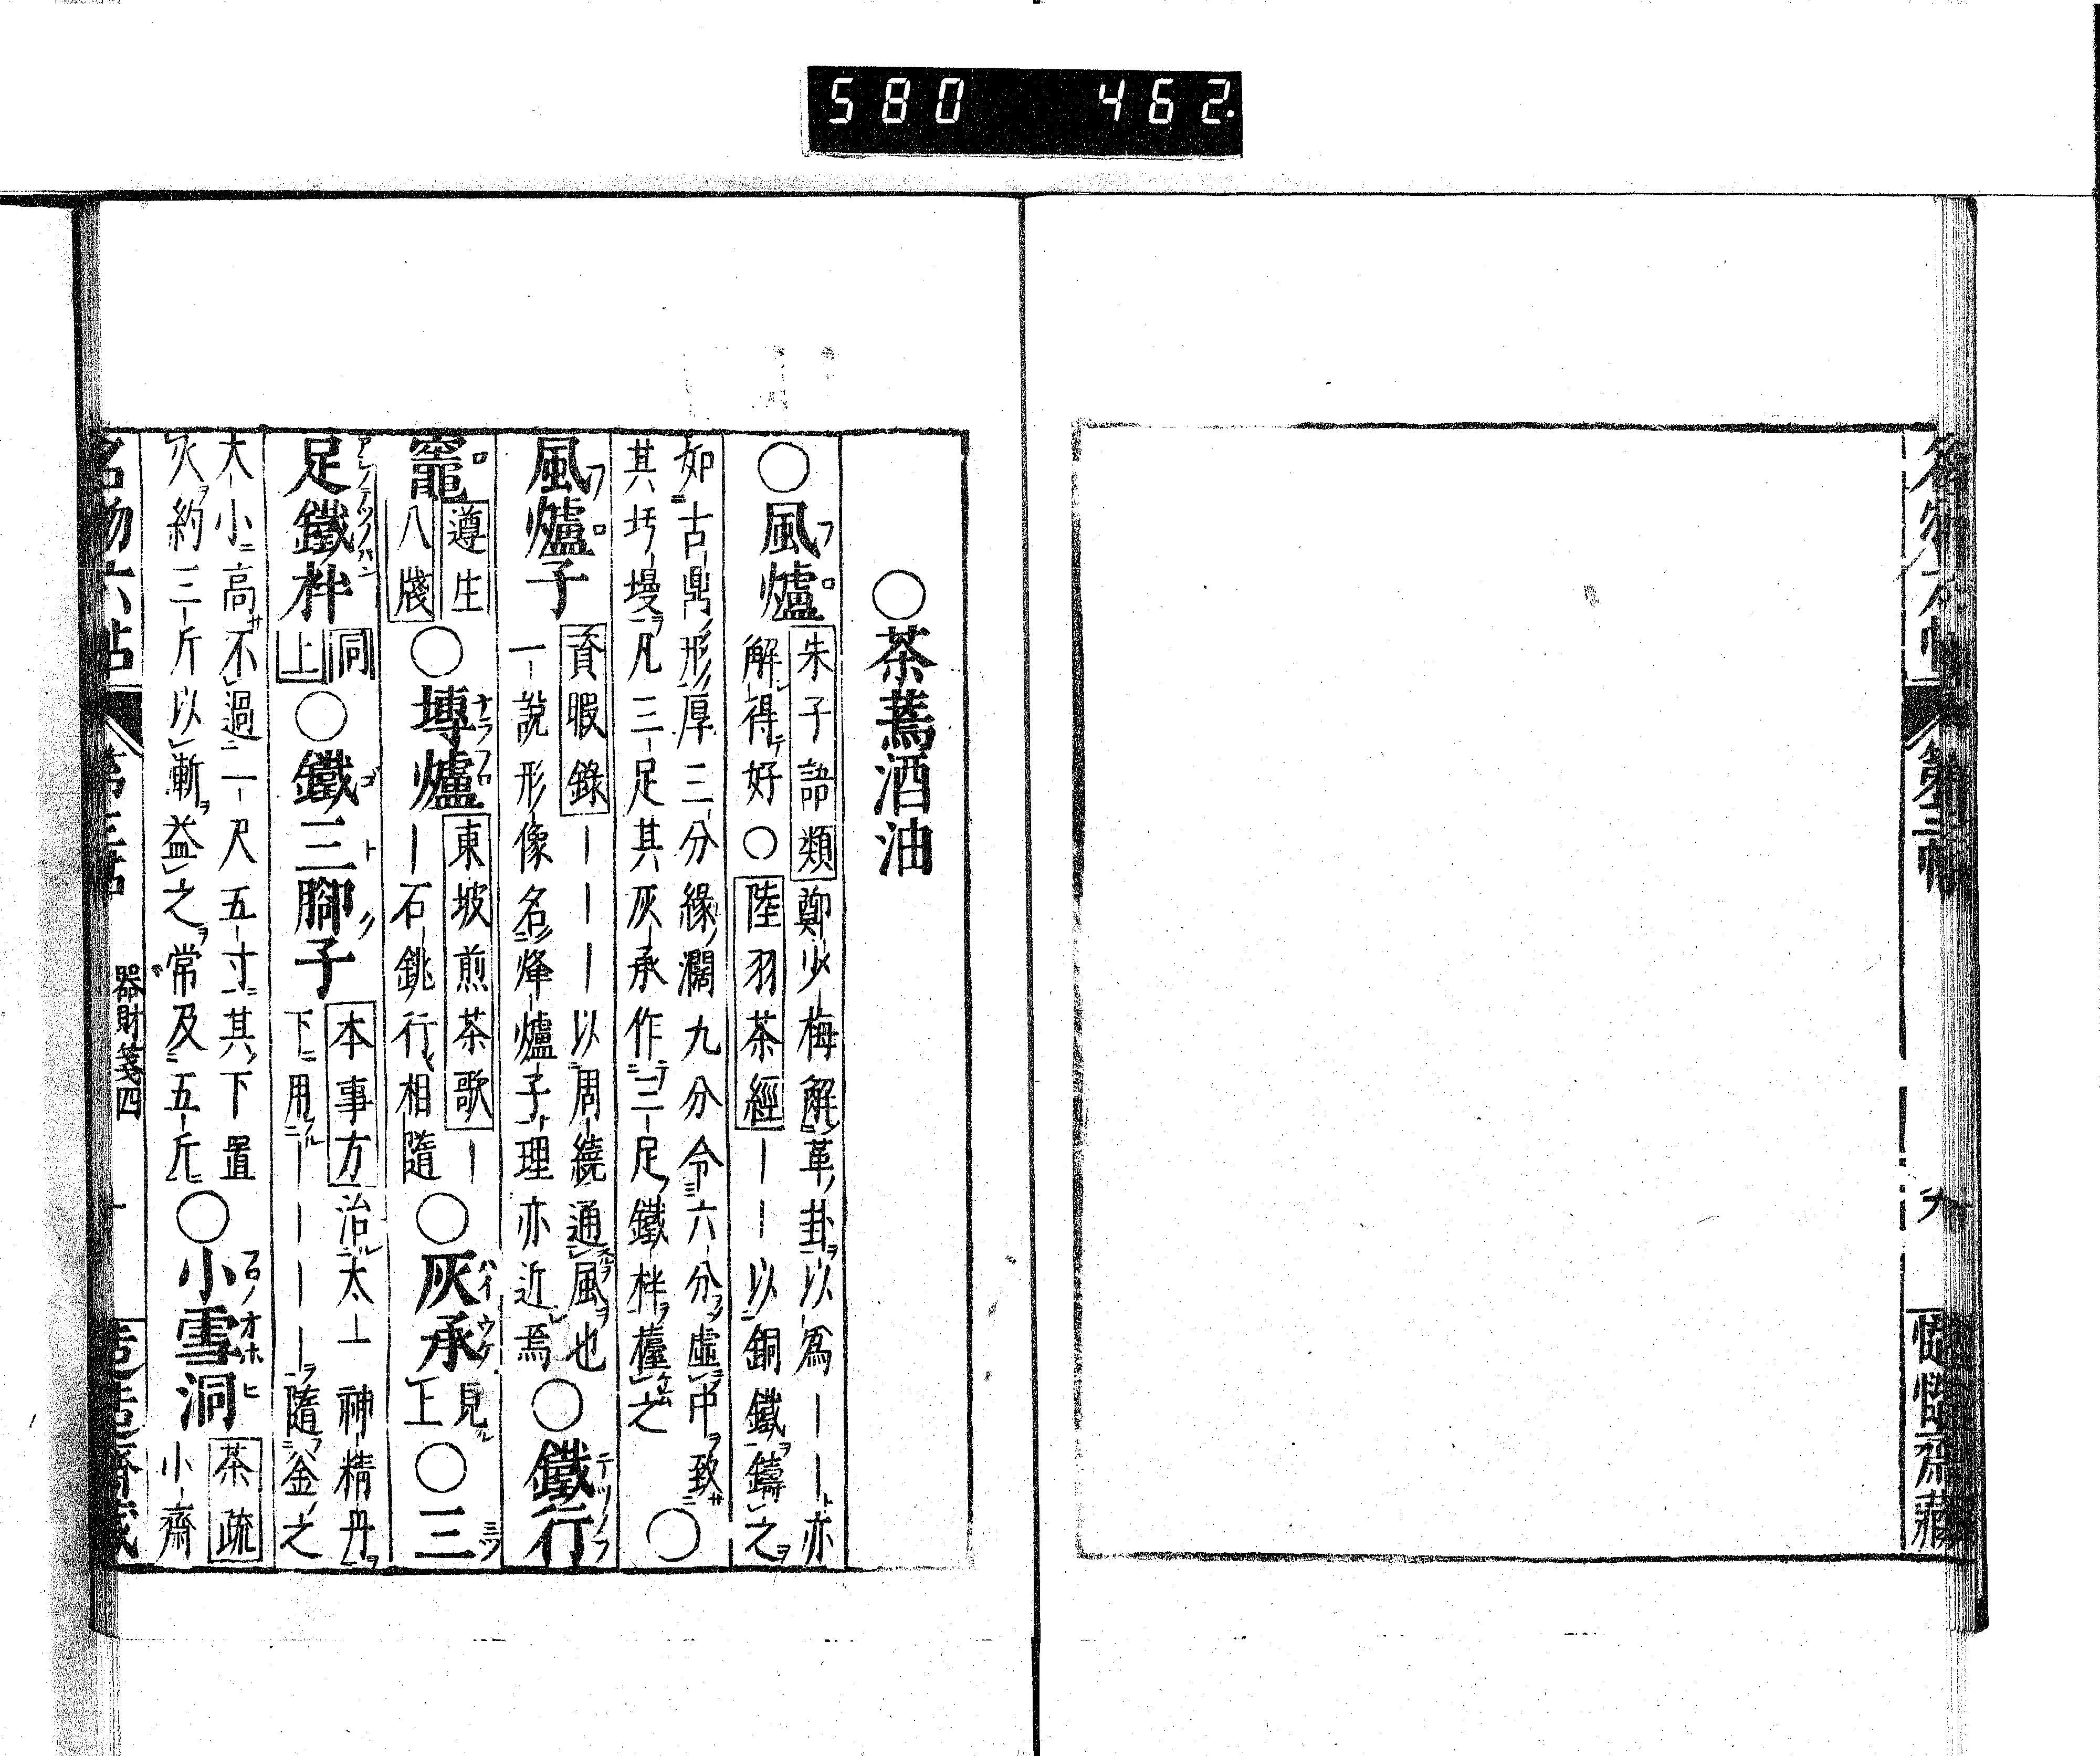 580 462.
第三帖
九
○茶蔫酒油
○風爐フロ
朱子語類鄭少梅解革卦以爲｜｜亦
解得好○陸羽茶經｜｜以銅鐵鑄之
如古鼎形厚三分緣濶九分令六分虛中致
其圬墁凡三足其灰承作三足鐵柈檯之○
風爐子フロ
資暇錄｜｜｜以周繞通風也
一說形像名烽爐子理亦近焉
○鐵行
竈
遵生
八牋
○塼爐
東坡煎茶歌｜
｜石銚行相隨
○灰承ハイウケ
見
上
○三
足鐵柈
同
上
○鐵三脚子ゴトク
本事方治太一神精丹
下用｜｜｜｜隨金之
大小高不過一尺五寸其下置
火約三斤以漸益之常及五斤
○小雪洞
茶疏
小齋
名物六帖
器財箋四
十